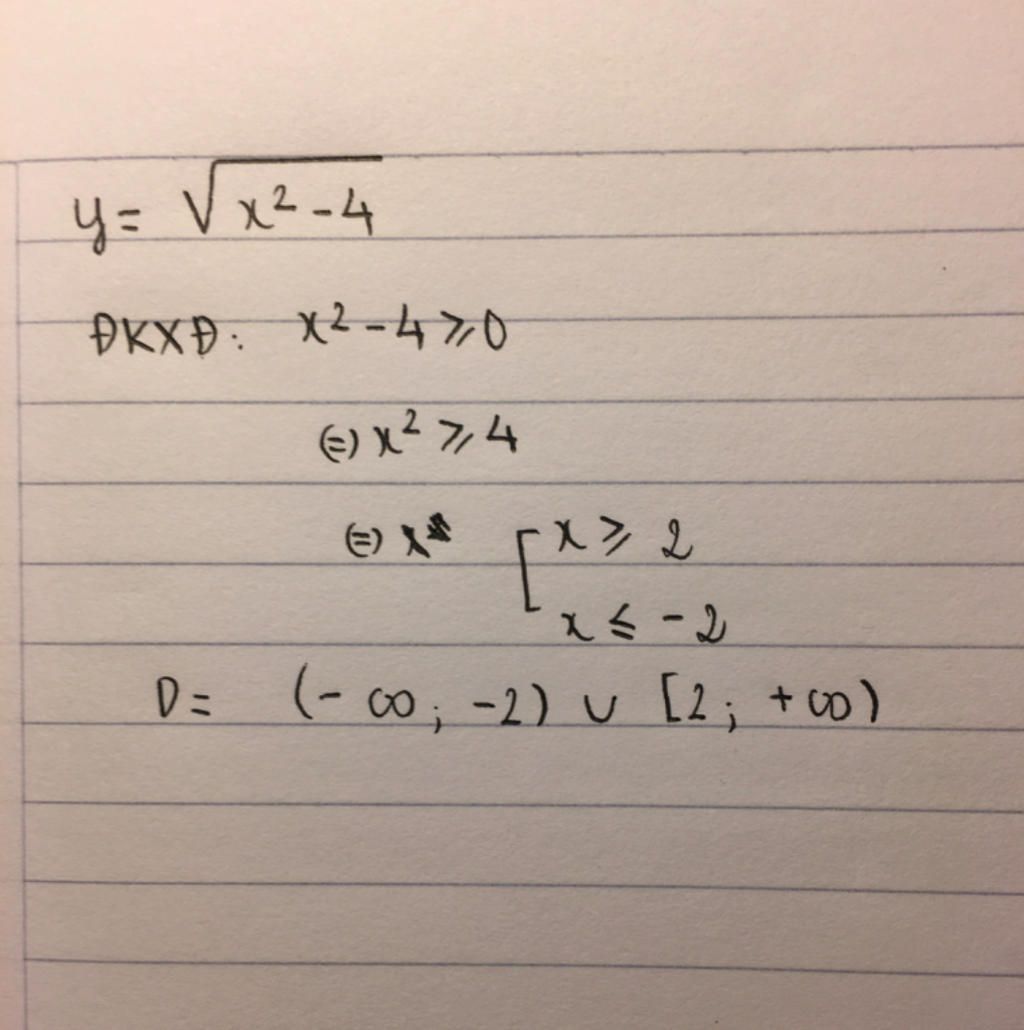 y = √(x² - 4)
ĐKXĐ: x² - 4 ⩾ 0
(=) x² ⩾ 4
(=) x [ x ⩾ 2
x ⩽ -2
D = (-∞; -2) ∪ [2; +∞)